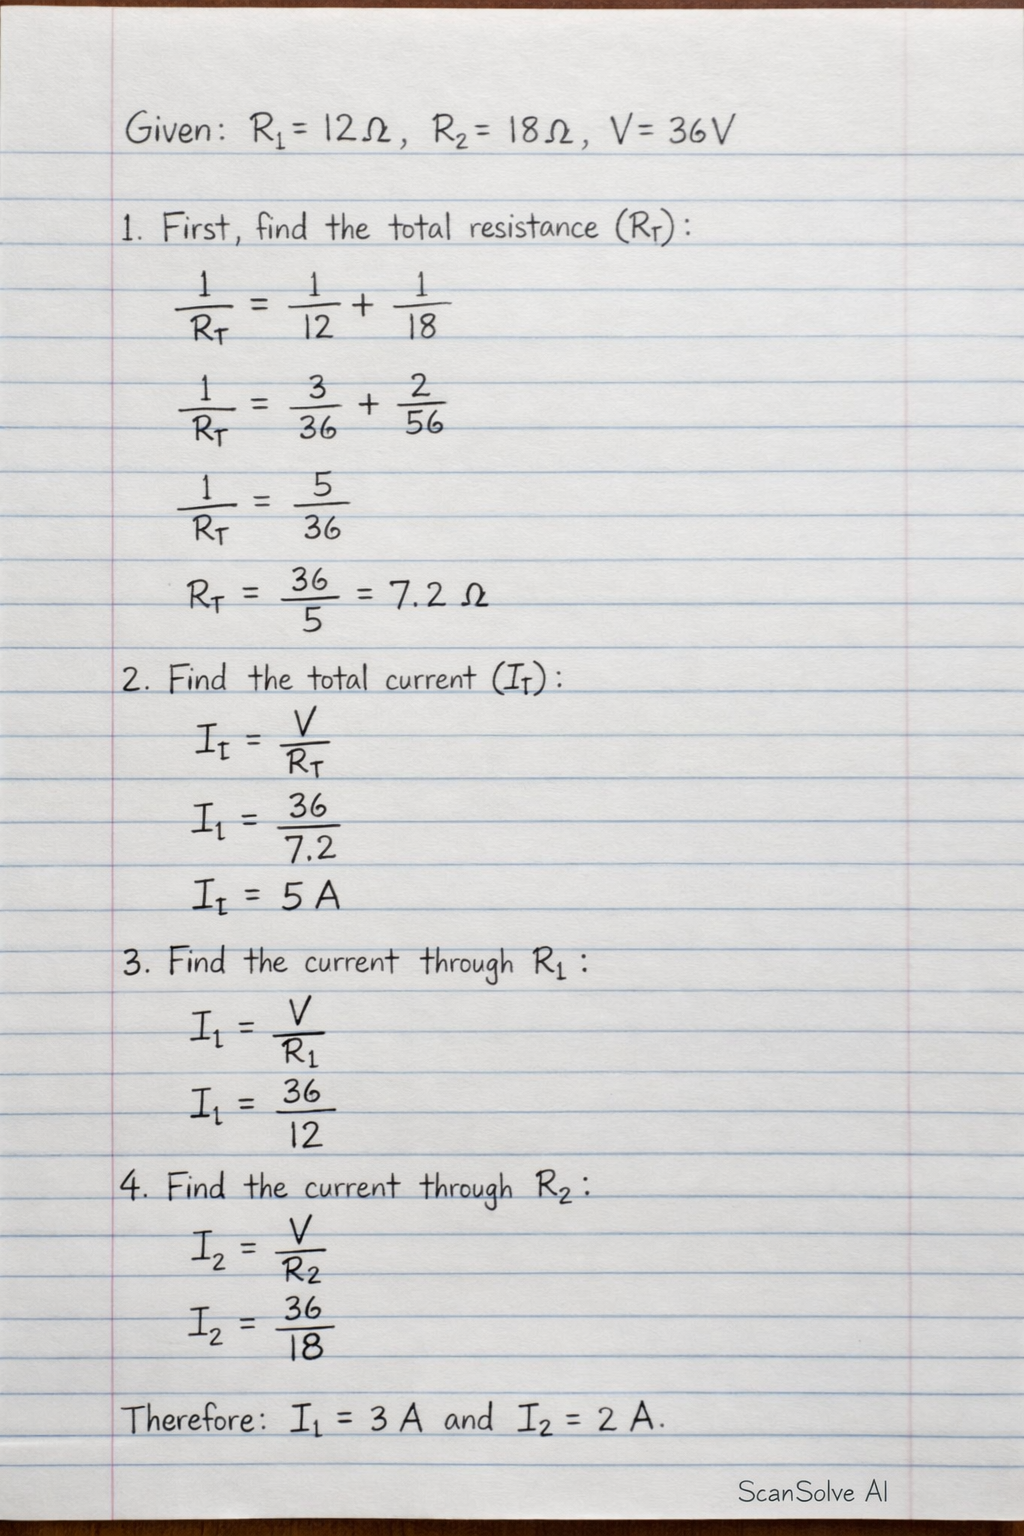 Given: R₁ = 12Ω, R₂ = 18Ω, V = 36V
1. First, find the total resistance (R_T):
1/R_T = 1/12 + 1/18
1/R_T = 3/36 + 2/56
1/R_T = 5/36
R_T = 36/5 = 7.2 Ω
2. Find the total current (I_T):
I_t = V/R_T
I₁ = 36/7.2
I_t = 5 A
3. Find the current through R₁:
I₁ = V/R₁
I₁ = 36/12
4. Find the current through R₂:
I₂ = V/R₂
I₂ = 36/18
Therefore: I₁ = 3 A and I₂ = 2 A.
ScanSolve AI